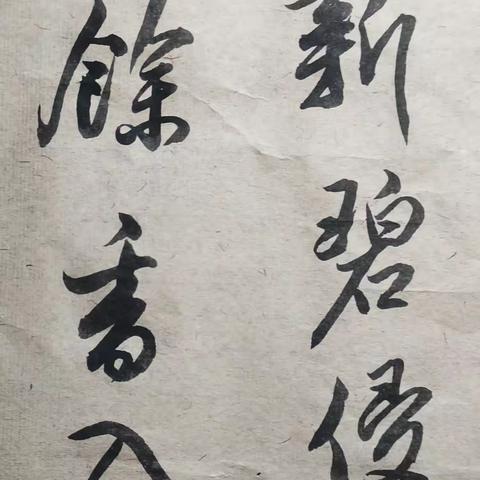 新碧侵
餘香入